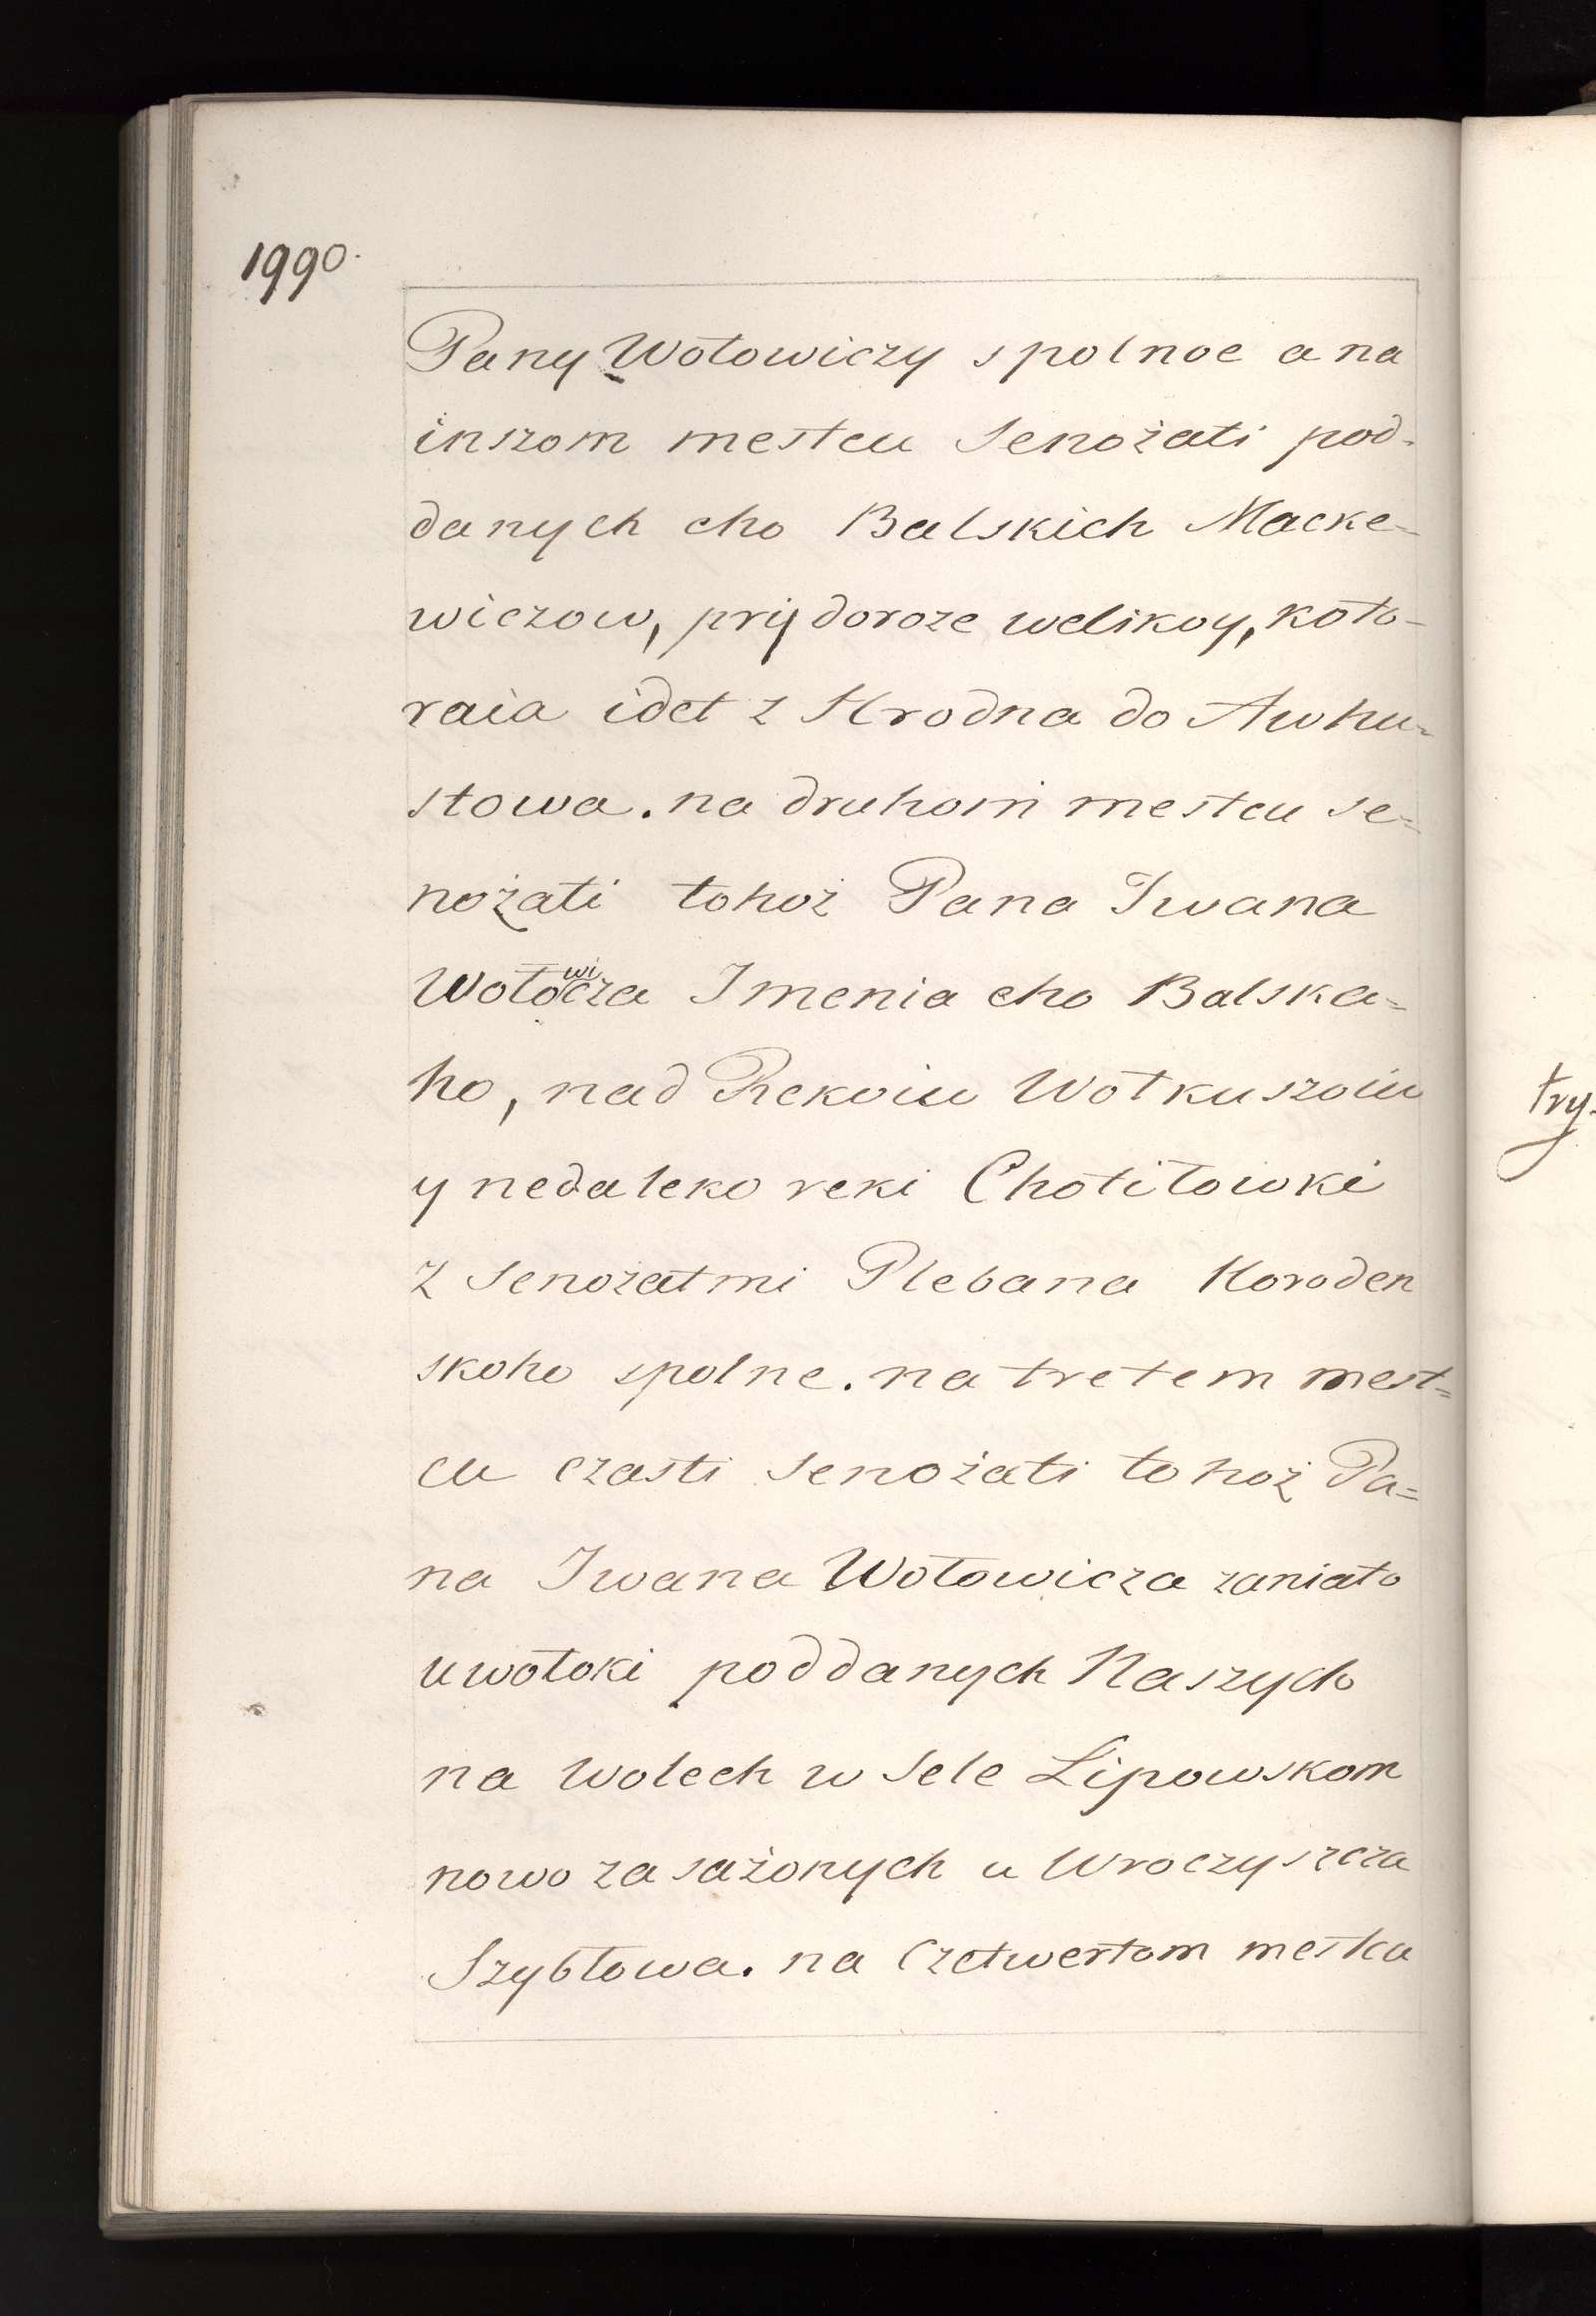 1990.
Pany Wołowiczy spolnoe a na
inszom mestcu Senożati pod-
danych eho Balskich Macke-
wiczow, pry doroze welikoy, koto-
raia idet z Hrodna do Awhu-
stowa. na druhom mestcu se=
nożati tohoż Pana Iwana
Wołowicza Imenia eho Balska=
ho, nad Rekoiu Wołkuszoiu
y nedaleko reki Chotiłowki
z Senożatmi Plebana Horoden
skoho spolne. na tretem mest=
cu czasti senożati tohoż Pa=
na Iwana Wołowicza zaniato
u wołoki poddanych Naszych
na Wolech w Sele Lipowskom
nowo zasażonych u Wroczyszcza
Szybłowa. na Czetwertom mestcu
try.